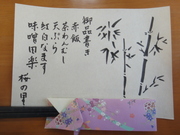 御品書き
赤飯
茶わんむし
天ぷら
紅白なます
味噌田楽
桜の里